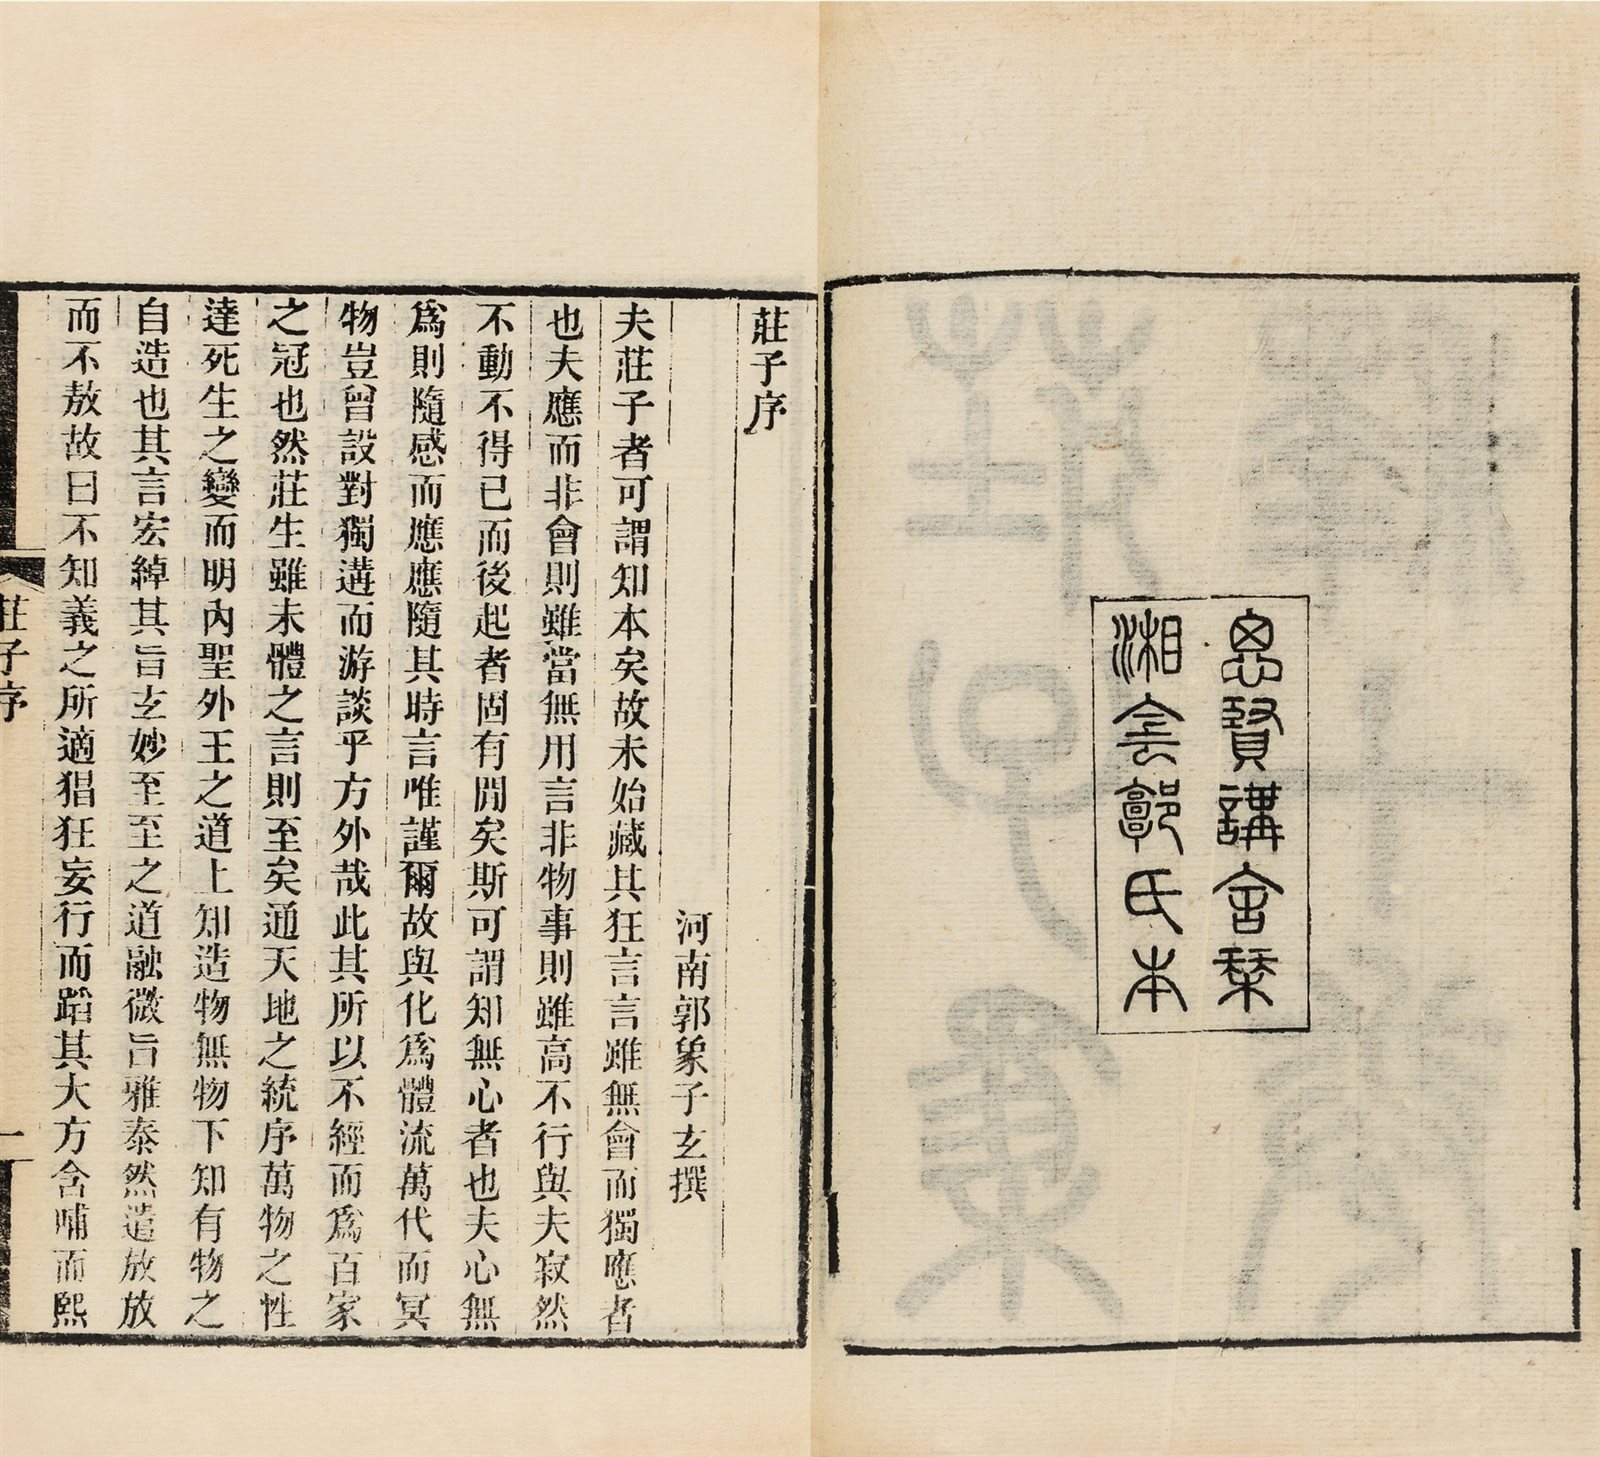 思賢講舍栞
湘侌郭氏本
莊子序
河南郭象子玄撰
夫莊子者可謂知本矣故未始藏其狂言言雖無會而獨應者
也夫應而非會則雖當無用言非物事則雖高不行與夫寂然
不動不得已而後起者固有閒矣斯可謂知無心者也夫心無
爲則隨感而應應隨其時言唯謹爾故與化爲體流萬代而冥
物豈曾設對獨遘而游談乎方外哉此其所以不經而爲百家
之冠也然莊生雖未體之言則至矣通天地之統序萬物之性
達死生之變而明內聖外王之道上知造物無物下知有物之
自造也其言宏綽其旨玄妙至至之道融微旨雅泰然遣放放
而不敖故曰不知義之所適猖狂妄行而蹈其大方含哺而熙
莊子序
一